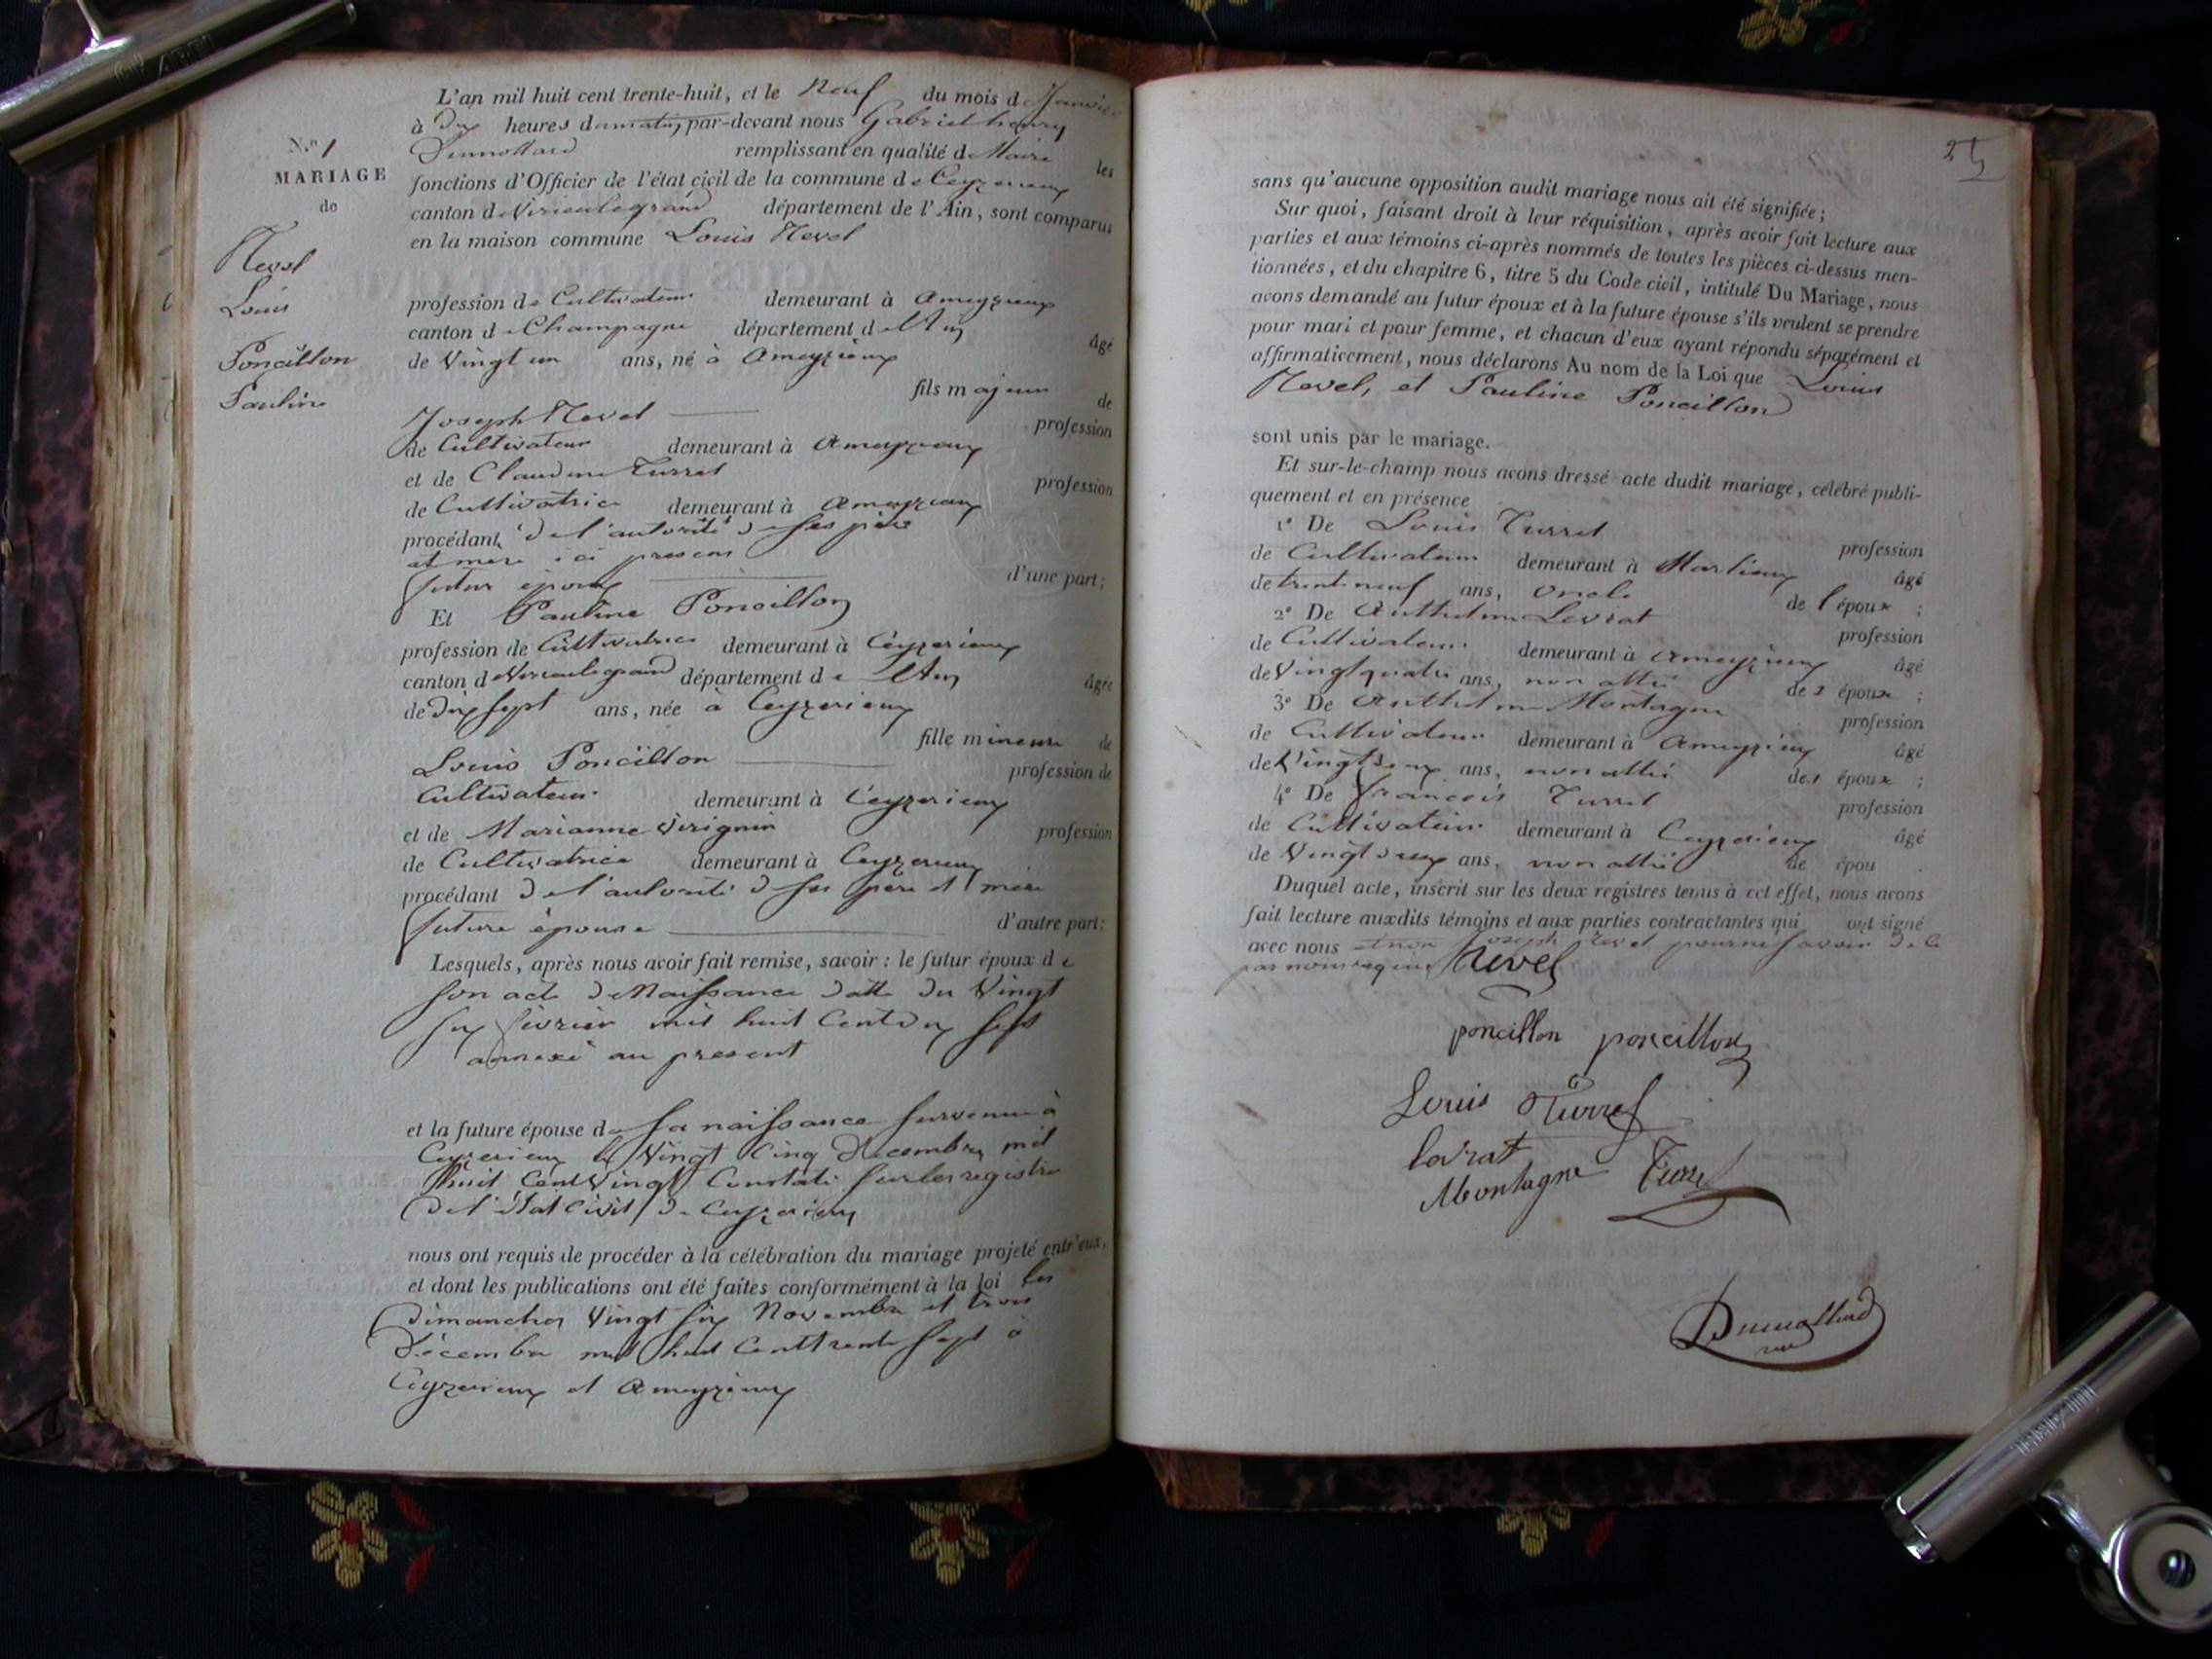 L'an mil huit cent trente-huit, et le Neuf du mois de Janvier
à dix heures du matin, par-devant nous Gabriel henry
Dumollard remplissant en qualité de Maire les
N.º 1
MARIAGE
de
fonctions d'Officier de l'état civil de la commune de Ceyzerieux
canton de Virieulegrand département de l'Ain, sont comparus
en la maison commune Louis Revel
Revel
Louis
Poncillon
Pauline
profession de Cultivateur demeurant à Ameyzieux
canton de Champagne département de l'Ain âgé
de Vingt un ans, né à Ameyzieux
fils majeur de
Joseph Revel profession
de Cultivateur demeurant à Ameyzieux
et de Claudine Turrel profession
de Cultivatrice demeurant à Ameyzieux
procédant de l'autorité de ses père
et mere ici presens
futur époux d'une part;
Et Pauline Poncillon
profession de Cultivatrice demeurant à Ceyzerieux
canton de Virieulegrand département de l'Ain âgée
de dix sept ans, née à Ceyzerieux
fille mineure de
Louis Poncillon profession de
Cultivateur demeurant à Ceyzerieux
et de Marianne Virignin profession
de Cultivatrice demeurant à Ceyzerieux
procédant de l'autorité de ses père et mère
future épouse d'autre part;
Lesquels, après nous avoir fait remise, savoir : le futur époux de
son acte de Naissance datté du Vingt
six février mil huit Cent dix sept
annexé au present
et la future épouse de sa naissance survenue à
Ceyzerieux le Vingt Cinq decembre mil
huit Cent Vingt Constaté sur les registre
de l'état Civil de Ceyzerieux
nous ont requis de procéder à la célébration du mariage projeté entr'eux,
et dont les publications ont été faites conformément à la loi les
Dimanches Vingt six Novembre et trois
Décembre mil huit Cent trente sept à
Ceyzerieux et Ameyzieux
25
sans qu'aucune opposition audit mariage nous ait été signifiée;
Sur quoi, faisant droit à leur réquisition, après avoir fait lecture aux
parties et aux témoins ci-après nommés de toutes les pièces ci-dessus men-
tionnées, et du chapitre 6, titre 5 du Code civil, intitulé Du Mariage, nous
avons demandé au futur époux et à la future épouse s'ils veulent se prendre
pour mari et pour femme, et chacun d'eux ayant répondu séparément et
affirmativement, nous déclarons Au nom de la Loi que Louis
Revel, et Pauline Poncillon
sont unis par le mariage.
Et sur-le-champ nous avons dressé acte dudit mariage, célébré publi-
quement et en présence
1º De Louis Turrel profession
de Cultivateur demeurant à Marlieux âgé
de trente neuf ans, oncle de l'époux ;
2º De Anthelme Levrat profession
de Cultivateur demeurant à Ameyzieux âgé
de Vingt quatre ans, non allié des époux ;
3º De Anthelme Montagne profession
de Cultivateur demeurant à Ameyzieux âgé
de Vingt deux ans, non allié des époux ;
4º De françois Turrel profession
de Cultivateur demeurant à Ceyzerieux âgé
de Vingt deux ans, non allié de épou .
Duquel acte, inscrit sur les deux registres tenus à cet effet, nous avons
fait lecture auxdits témoins et aux parties contractantes qui ont signé
avec nous et non Joseph Revel pour ne savoir de ce
par nous requis Revel
poncillon poncillon
Louis Turrel
Levrat
Montagne Turrel
Dumollard